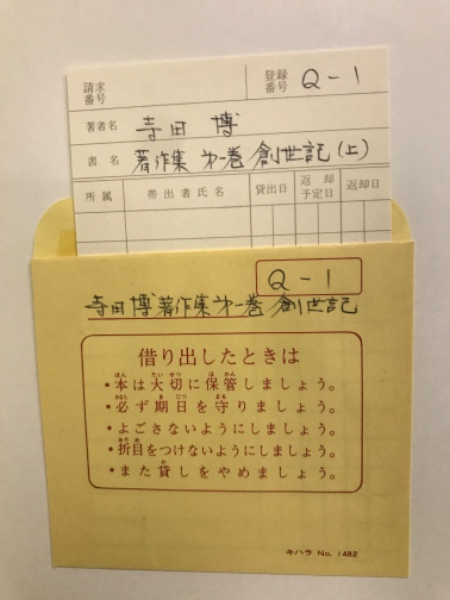 請求番号 登録番号 Q-1
著者名 寺田 博
書名 著作集 第一巻 創世記(上)
所属 帯出者氏名 貸出日 返却予定日 返却日
Q-1
寺田博著作集第一巻 創世記
借り出したときは
・本は大切に保管しましょう。
・必ず期日を守りましょう。
・よごさないようにしましょう。
・折目をつけないようにしましょう。
・また貸しをやめましょう。
キハラ No. 1482